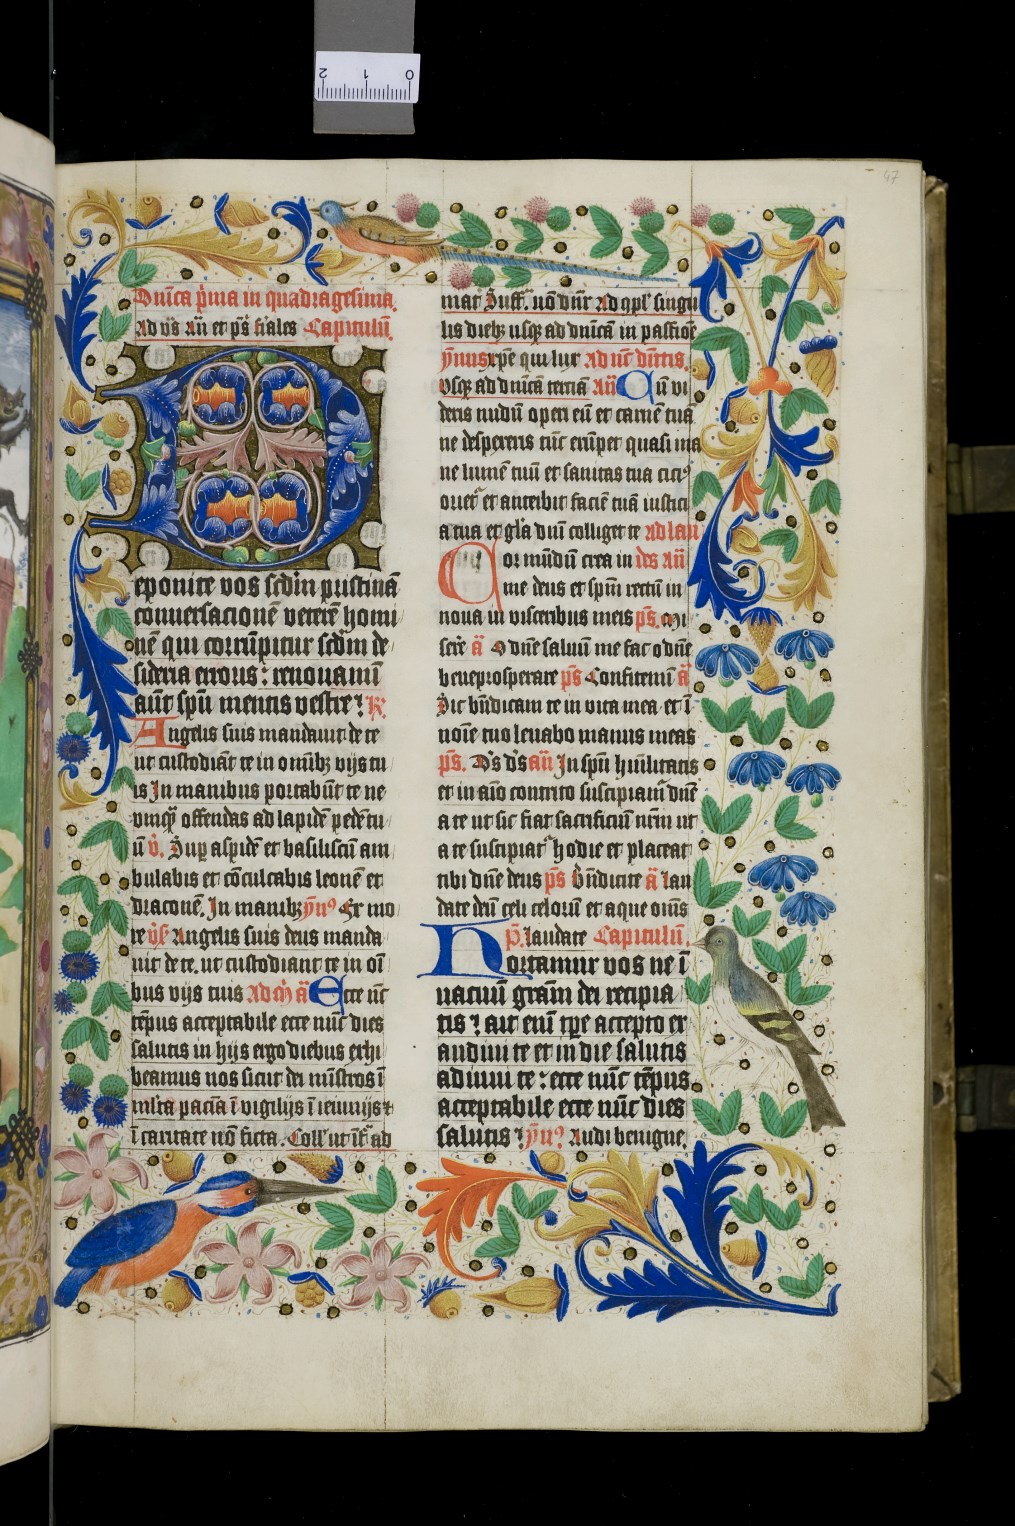 47
2 1 0
Dnica pma in quadragesima.
Ad vs an et ps fiales Capitulū.
Deponite vos scdm pristinā
conuersacionē veterē homi
nē qui corrūpitur scdm de
sideria erroris : renouamī
aūt spū mentis vestre : R
Angelis suis mandauit de te
ut custodiāt te in omīb vijs tu
is In manibus portabūt te ne
vnq offendas ad lapidē pedē tu
ū v. Sup aspidē et basiliscū am
bulabis et cōculcabis leonē et
draconē. In manib ymꝰ Ex mo
re vs Angelis suis deus manda
uit de te. ut custodiant te in oī
bus vijs tuis Ad m a Ecce nūc
tēpus acceptabile ecce nūc dies
salutis in hijs ergo diebus exhi
beamus nos sicut dei mīstros ī
mlta paciā ī vigilijs ī ieiunijs ⁊
ī caritate nō ficta. Coll ut ī ad
mat Suff. nō dnr Ad opl singu
lis dieb usq ad dnicā in passiōe
ymus xpe qui lux Ad nc dittis.
Vsq ad dnicā terciā an Cū vi
deris nudū operi eū et carnē tuā
ne despexeris tūc erūpet quasi ma
ne lumē tuū et sanitas tua citiꝰ
oriet et anteibit faciē tuā iustici
a tua et gla dnī colliget te ad lau
Cor mūdū crea in des an
me deus et spm rectū in
noua in visceribus meis ps. Mi
sere a O dne saluū me fac o dne
bene prosperare ps Confitemī a
Sic bndicam te in vita mea et ī
noīe tuo leuabo manus meas
ps. Ds ds an In spū hūilitatis
et in aīo contrito suscipiam dne
a te ut sic fiat sacrificiū nrm ut
a te suscipiat hodie et placeat
tibi dne deus ps Bndicite a Lau
date deū celi celorū et aque oīns
p. laudate Capitulū.
Hortamur vos ne ī
uacuū gram dei recipia
tis : ait eni tpe accepto ex
audiui te et in die salutis
adiuui te : ecce nūc tēpus
acceptabile ecce nūc dies
salutis : ymꝰ Audi benigne.